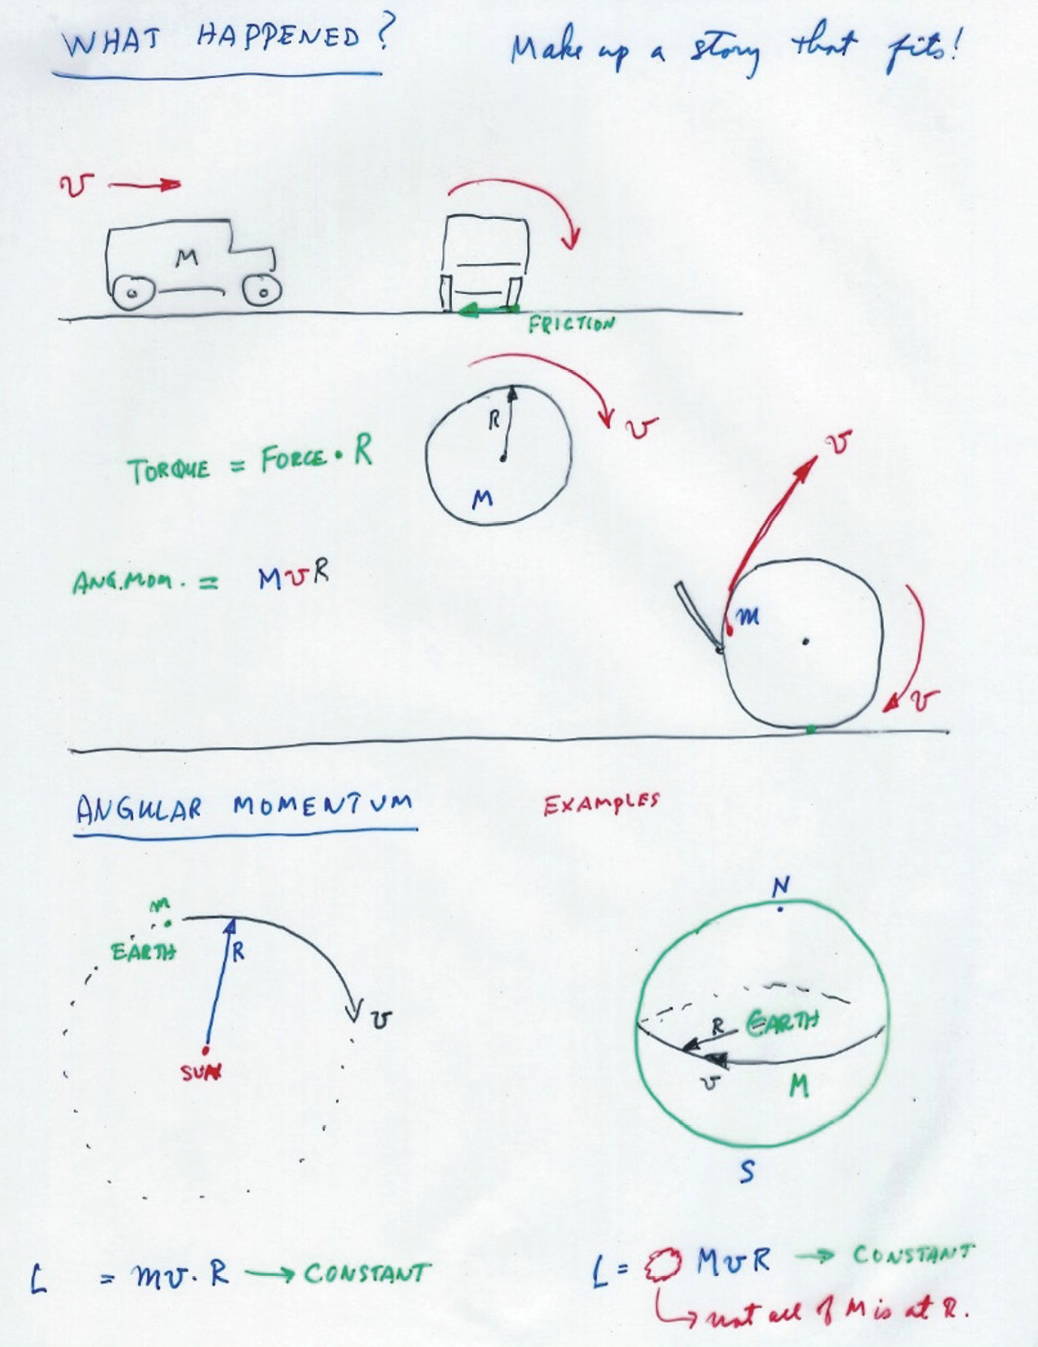 WHAT HAPPENED?
Make up a story that fits!
v
M
FRICTION
R
v
M
TORQUE = FORCE • R
v
ANG.MOM. = MvR
m
v
ANGULAR MOMENTUM
EXAMPLES
N
m
EARTH
R
v
SUN
R
EARTH
v
M
S
L = mv. R → CONSTANT
L = MvR → CONSTANT
↳ not all of M is at R.